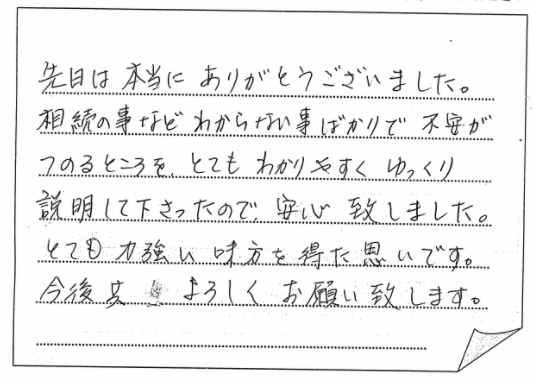 先日は 本当に ありがとうございました。
相続の事など わからない事ばかりで 不安が
つのるところを、とても わかりやすく ゆっくり
説明して下さったので、安心 致しました。
とても 力強い 味方を 得た 思いです。
今後共 よろしく お願い致します。